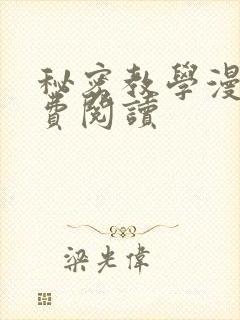 秘密教學漫
費閱讀
梁光偉